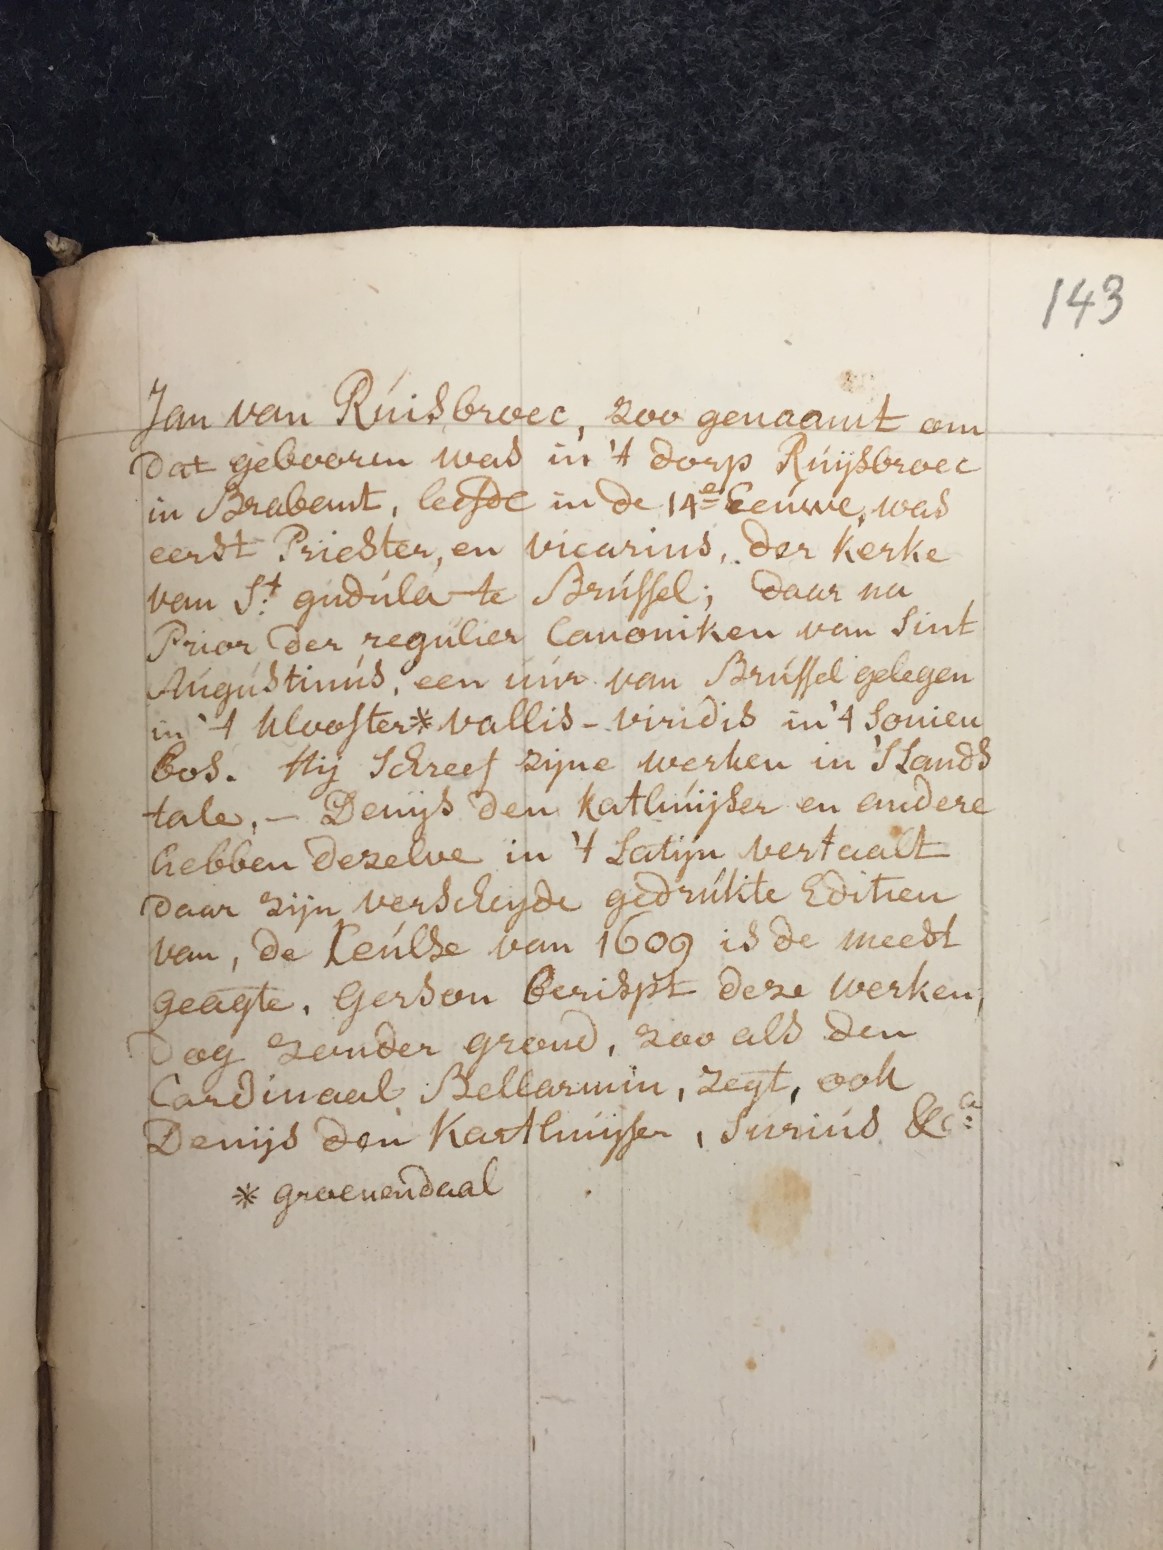 143
Jan van Ruisbroec, zoo genaamt om
dat gebooren was in 't dorp Ruijsbroec
in Brabant, leefde in de 14e Eeuwe, was
eerst Priester, en vicarius, der Kerke
van St. gudula te Brussel; daar na
Prior der regulier Canoniken van Sint
Augustinus, een uur van Brussel gelegen
in 't klooster* vallis-viridis in 't Sonien
bos. Hij Schreef zijne werken in 'S Lands
tale, - Denijs den Kathuijser en andere
hebben dezelve in 't Latijn vertaalt
daar zijn verscheyde gedrukte Editien
van, de Keulse van 1609 is de meest
geagte. Gerson berispt deze werken,
dog zonder grond, zoo als den
Cardinaal Bellarmin, zegt, ook
Denijs den Karthuijser, Surius &ca:
* groenendaal